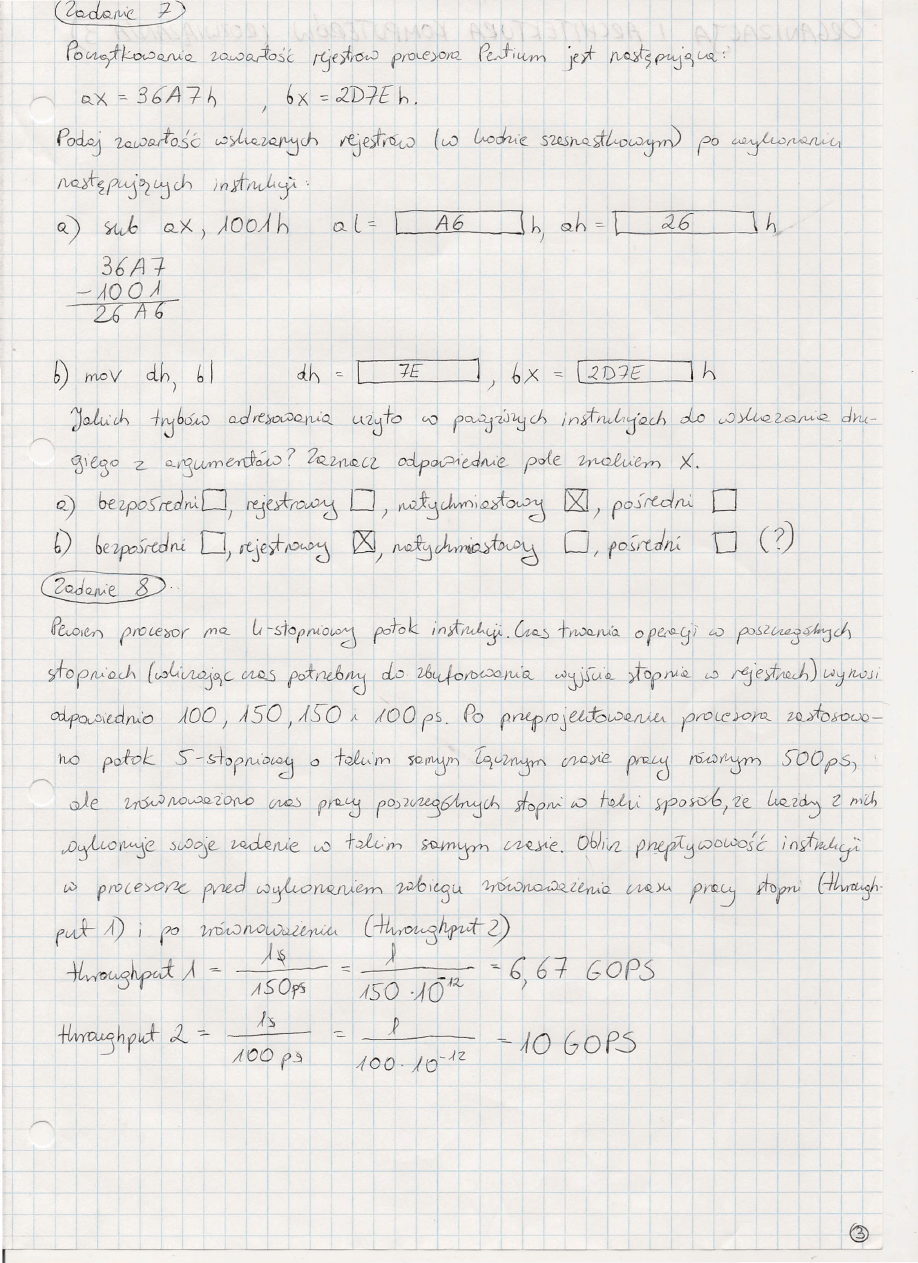 Zadanie 7
Początkowania zawartość rejestrów procesora Pentium jest następująca:
ax = 36A7h , bx = 2D7Eh.
Podaj zawartość wskazanych rejestrów (w kodzie szesnastkowym) po wykonaniu
następujących instrukcji:
a) sub ax, 1001h al = A6 h, ah = 26 h
36A7
-1001
26A6
b) mov dh, bl dh = 7E , bx = 2D7E h
Jakich trybów adresowania użyto w powyższych instrukcjach do wskazania dru-
giego z argumentów? Zaznacz odpowiednie pole znakiem X.
a) bezpośredni ☐, rejestrowy ☐, natychmiastowy ☒, pośredni ☐
b) bezpośredni ☐, rejestrowy ☒, natychmiastowy ☐, pośredni ☐ (?)
Zadanie 8
Pewien procesor ma 4-stopniowy potok instrukcji. Czas trwania operacji w poszczególnych
stopniach (wliczając czas potrzebny do zbuforowania wyjścia stopnia w rejestrach) wynosi
odpowiednio 100, 150, 150 i 100 ps. Po przeprojektowaniu procesora zastosowa-
no potok 5-stopniowy o takim samym łącznym czasie pracy równym 500ps,
ale zrównoważono czas pracy poszczególnych stopni w taki sposób, że każdy z nich
wykonuje swoje zadanie w takim samym czasie. Oblicz przepływowość instrukcji
w procesorze przed wykonaniem zabiegu zrównoważenia czasu pracy stopni (through-
put 1) i po zrównoważeniu (throughput 2)
throughput 1 = 1s / 150ps = 1 / 150·10^-12 = 6,67 GOPS
throughput 2 = 1s / 100 ps = 1 / 100·10^-12 = 10 GOPS
3